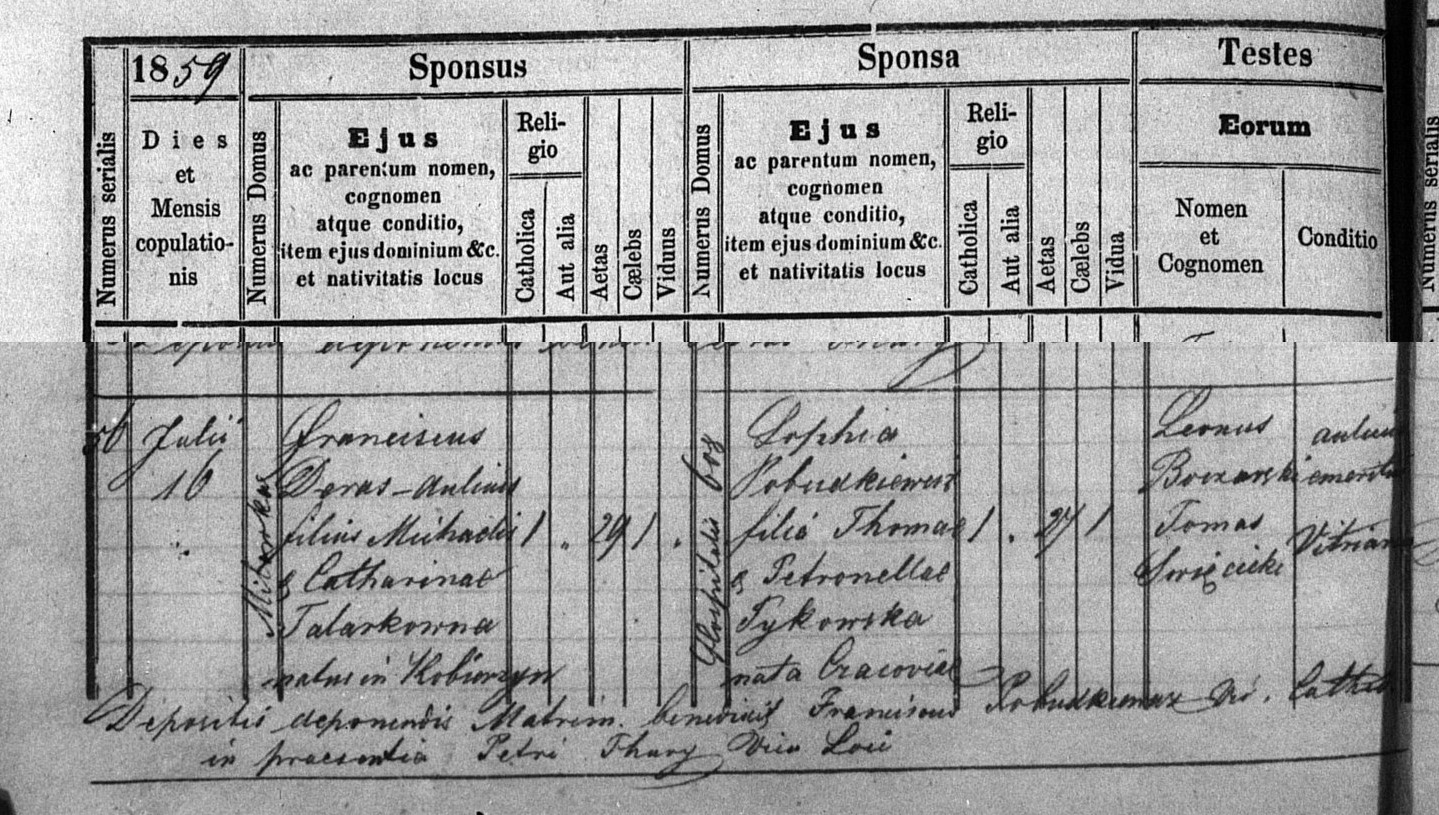 1859
Sponsus
Sponsa
Testes
Numerus serialis
Dies
et
Mensis
copulatio-
nis
Numerus Domus
Ejus
ac parentum nomen,
cognomen
atque conditio,
item ejus dominium &c.
et nativitatis locus
Reli-
gio
Catholica
Aut alia
Aetas
Cælebs
Viduus
Numerus Domus
Ejus
ac parentum nomen,
cognomen
atque conditio,
item ejus dominium &c.
et nativitatis locus
Reli-
gio
Catholica
Aut alia
Aetas
Cælebs
Vidua
Eorum
Nomen
et
Cognomen
Conditio
Numerus serialis
56
Julii
16
Franciscus
Deras-Aulicus
filius Michaelis
& Catharinae
Talarkowna
natus in Kobierzyn
1
29
1
Hospitalis 608
Sophia
Pobudkiewicz
filia Thomae
& Petronellae
Tykowska
nata Cracoviae
1
27
1
Leonus
Tomas
Święcicki
Depositis deponendis Matrim. benedixit Franciscus Pobudkiewicz Vic. Cathed.
in praesentia Petri Thury Vice Loci